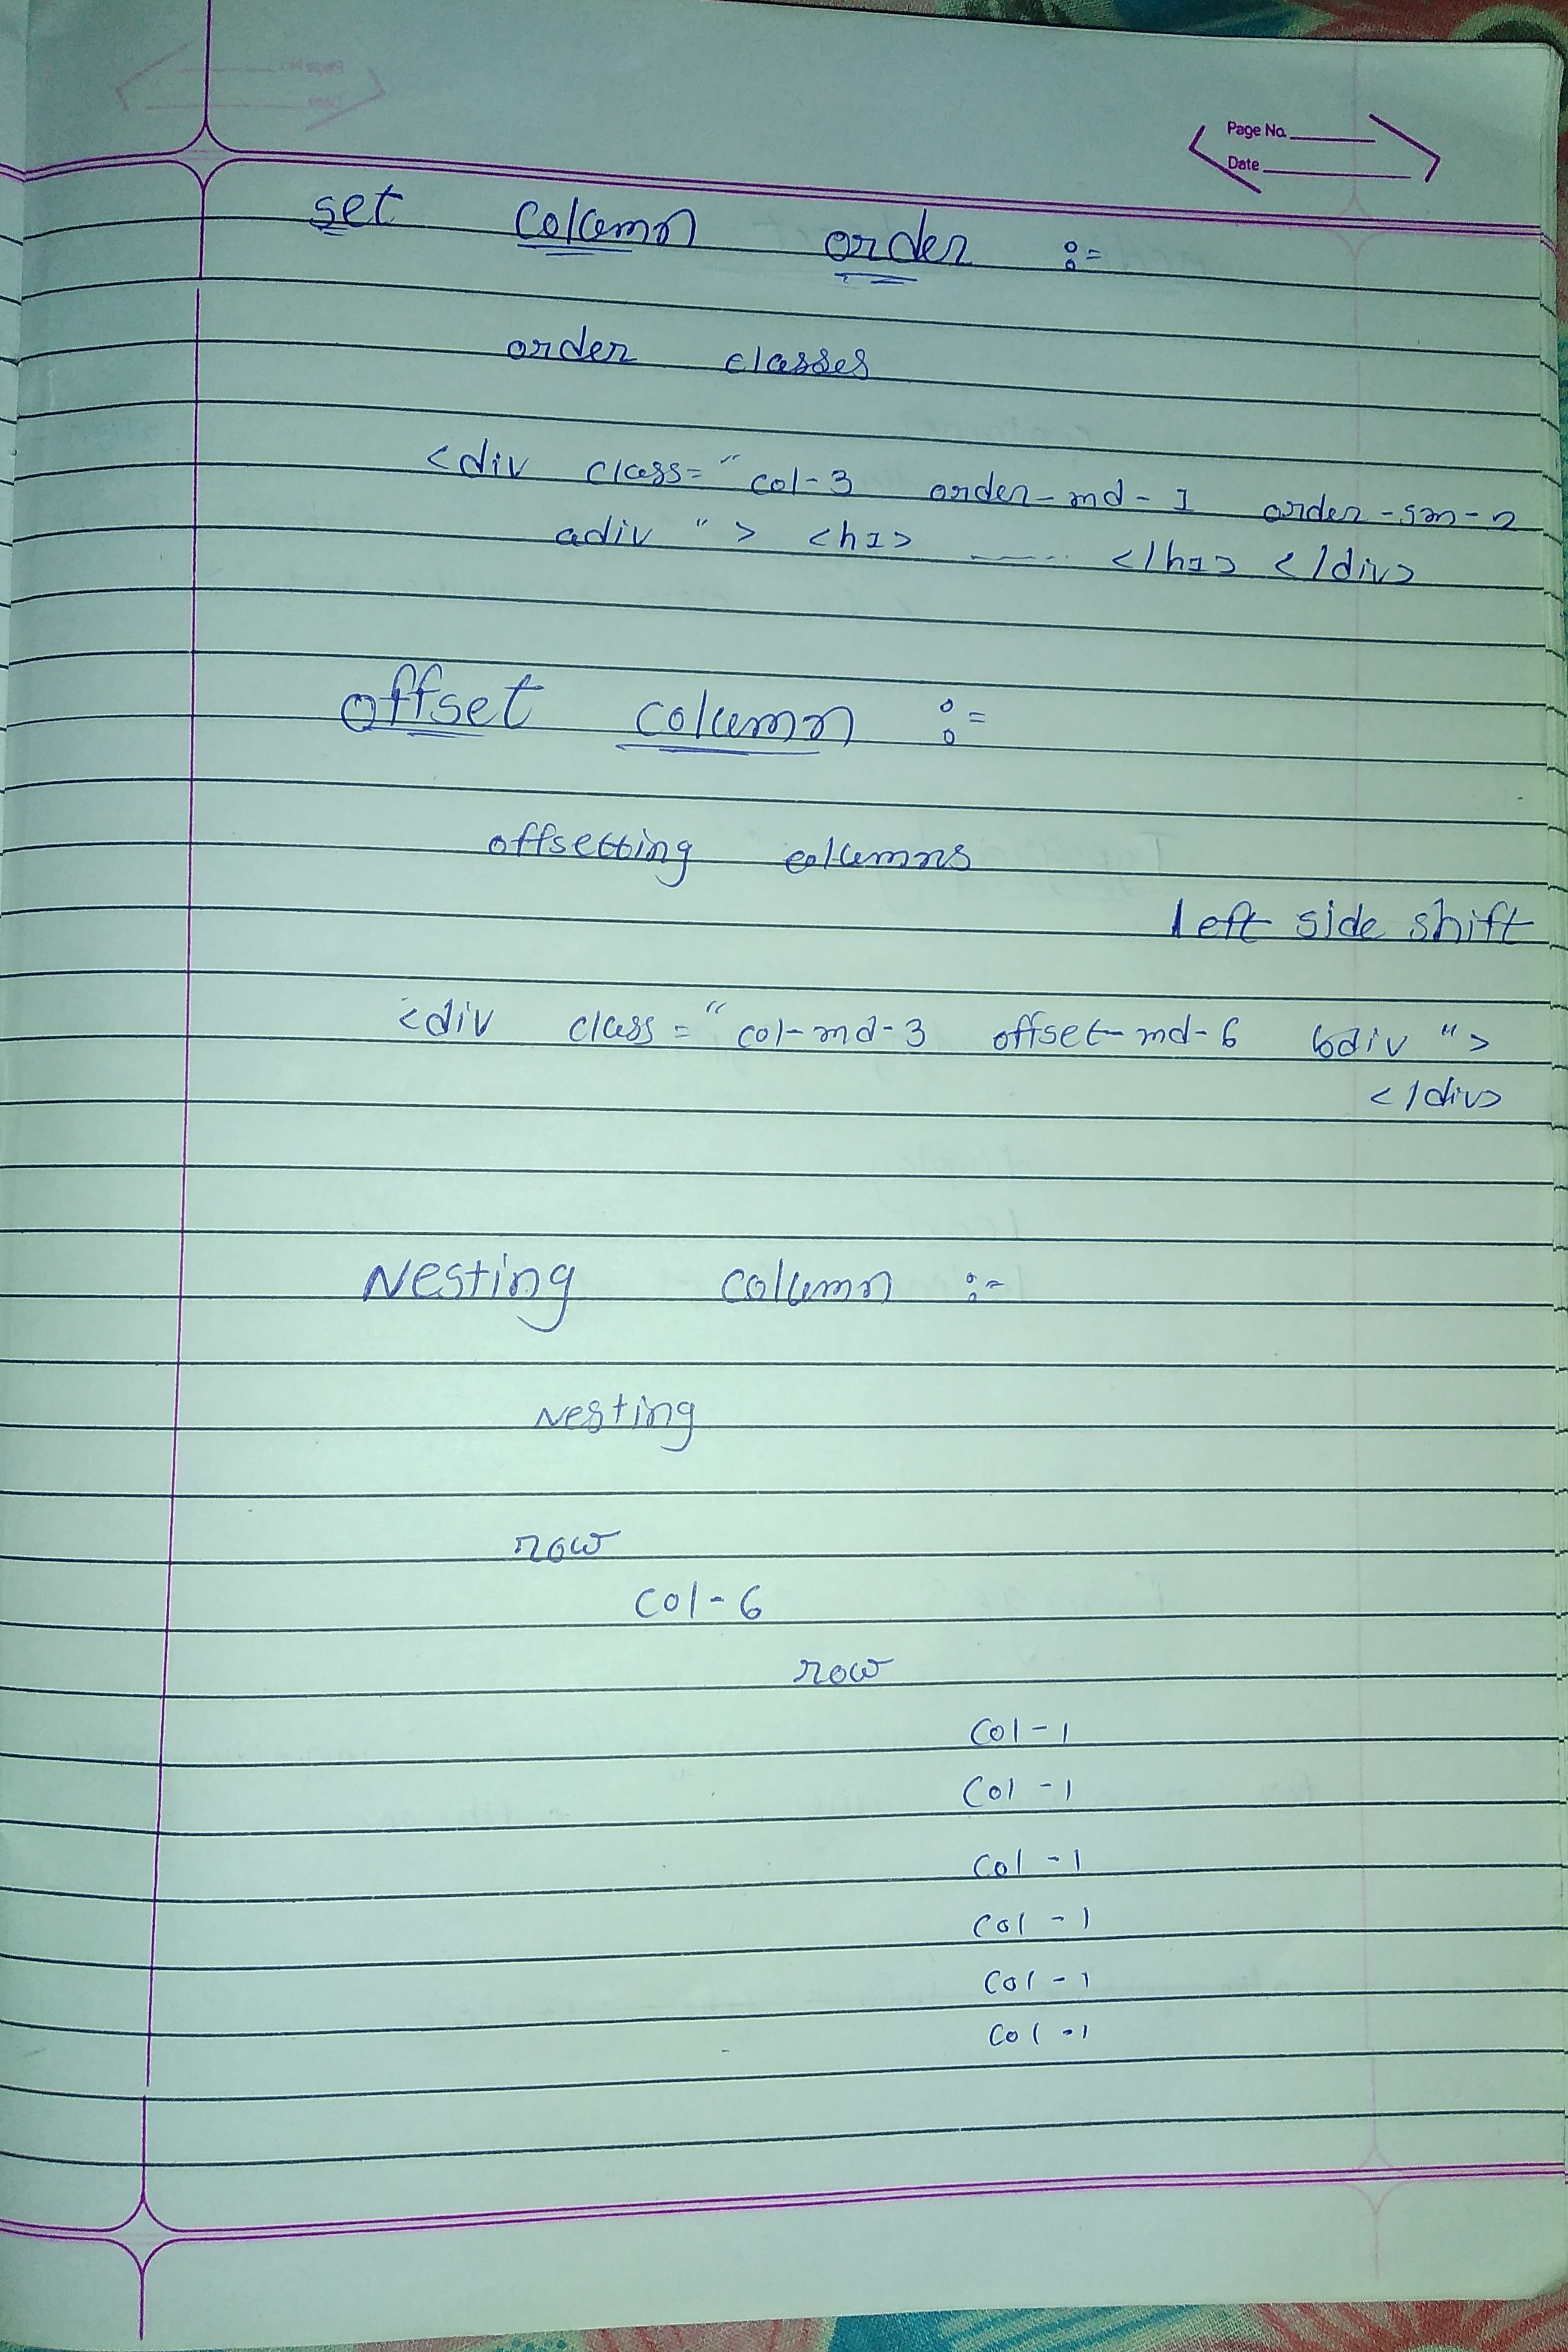 Page No.
Date
set column order :=
order classes
<div class="col-3 order-md-1 order-sm-2
adiv "> <h1> ...... </h1> </div>
offset column :=
offsetting columns
left side shift
<div class="col-md-3 offset-md-6 bdiv ">
</div>
Nesting column :-
Nesting
row
col-6
row
col-1
col-1
col-1
col-1
col-1
col-1